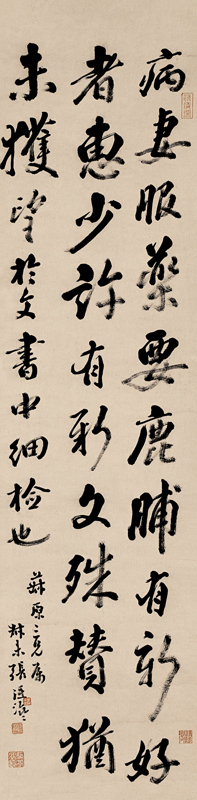 病妻服藥要鹿脯有新好
者惠少許有新文殊贊猶
未獲望於文書中細檢也
蘇原三兄属
弟張